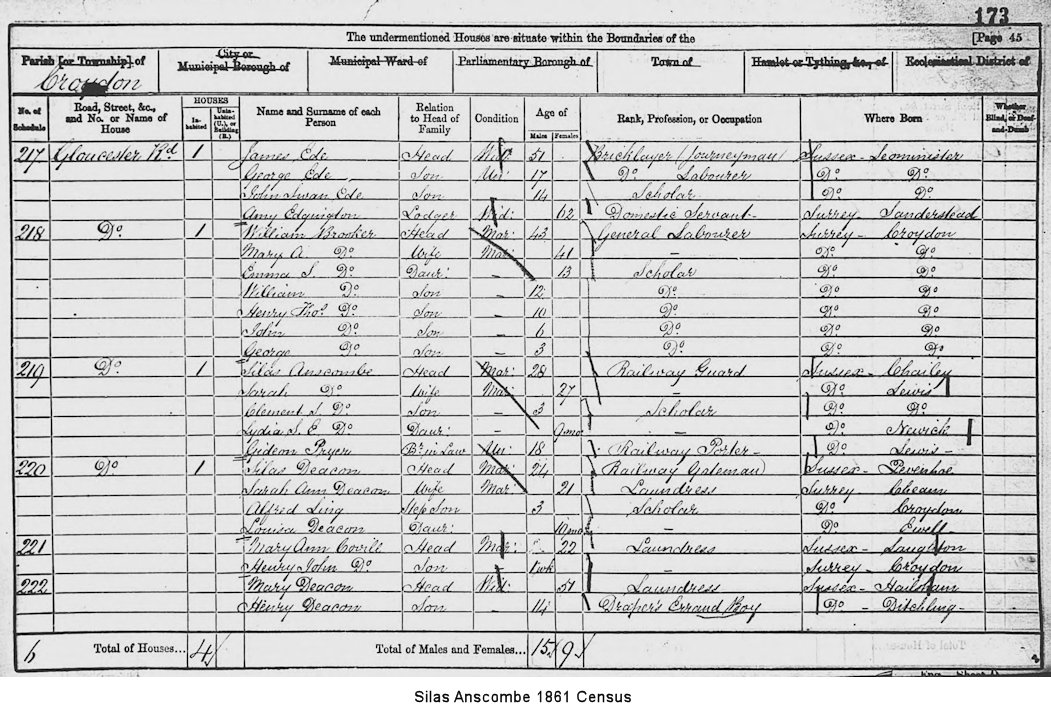 173
The undermentioned Houses are situate within the Boundaries of the [Page 45
Parish [or Township] of City or Municipal Borough of Municipal Ward of Parliamentary Borough of Town of Hamlet or Tything, &c., of Ecclesiastical District of
Croydon
No. of Schedule Road, Street, &c., and No. or Name of House HOUSES Inhabited Uninhabited (U.), or Building (B.) Name and Surname of each Person Relation to Head of Family Condition Age of Males Females Rank, Profession, or Occupation Where Born Whether Blind, or Deaf-and-Dumb
217 Gloucester Rd 1 James Ede Head Wid: 51 Bricklayer (Journeyman) Sussex - Leominister
George Ede Son Un: 17 Do Labourer Do Do
John Swan Ede Son 14 Scholar Do Do
Amy Edquigton Lodger Wid: 62 Domestic Servant - Surrey Sanderstead
218 Do 1 William Brooker Head Mar: 43 General Labourer Surrey - Croydon
Mary A. Do Wife Mar: 41 - Do Do
Emma S. Do Daur: - 13 Scholar Do Do
William Do Son - 12 Do Do Do
Henry Thos. Do Son - 10 Do Do Do
John Do Son - 6 Do Do Do
George Do Son - 3 Do Do Do
219 Do 1 Silas Anscombe Head Mar: 28 Railway Guard Sussex - Chailey
Sarah Do Wife Mar: 27 - Do Lewis
Clement S. Do Son - 3 Scholar Do Do
Lydia S. E. Do Daur: - 9mo - Do Newick
Gideon Pryer Br: in Law Un: 18 Railway Porter - Do Lewis -
220 Do 1 Silas Deacon Head Mar: 24 Railway Gateman Sussex - Pevenhoe
Sarah Ann Deacon Wife Mar: 21 Laundress Surrey - Cheam
Alfred Ling Step Son 3 Scholar Do Croydon
Louisa Deacon Daur: 10mo - Do Ewell
221 Mary Ann Covill Head Mar: 22 Laundress Sussex - Laughton
Henry John Do Son - 1wk - Surrey - Croydon
222 Mary Deacon Head Wid: 51 Laundress Sussex - Hailsham
Henry Deacon Son - 14 Draper's Errand Boy Do - Ditchling -
6 Total of Houses... 4 Total of Males and Females... 15 9
Silas Anscombe 1861 Census